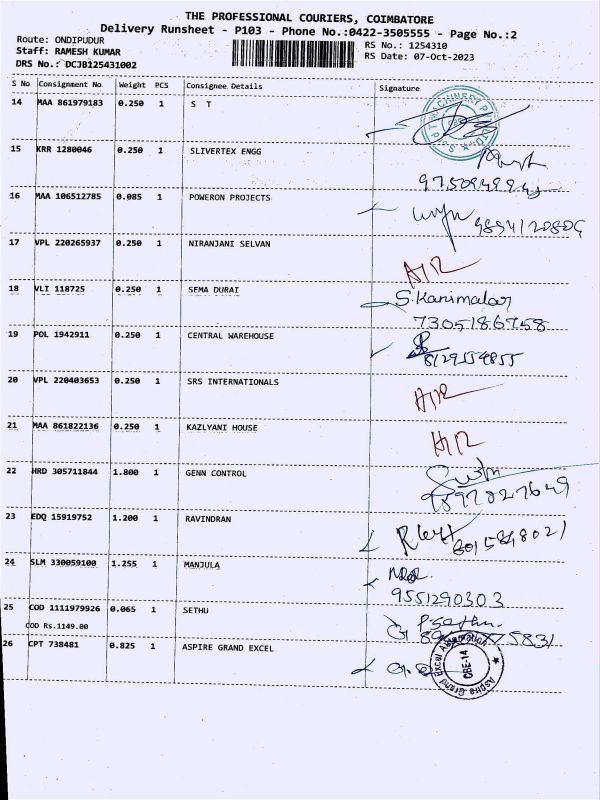 THE PROFESSIONAL COURIERS, COIMBATORE
Delivery Runsheet - P103 - Phone No.:0422-3505555 - Page No.:2
Route: ONDIPUDUR
RS No.: 1254310
Staff: RAMESH KUMAR
RS Date: 07-Oct-2023
DRS No.: DCJB125431002
S No Consignment No Weight PCS Consignee Details Signature
14 MAA 861979183 0.250 1 S T
15 KRR 1280046 0.250 1 SLIVERTEX ENGG
16 MAA 106512785 0.085 1 POWERON PROJECTS
9894120809
17 VPL 220265937 0.250 1 NIRANJANI SELVAN
AIR
18 VLI 118725 0.250 1 SEMA DURAI
S.Kanimalar
7305186758
19 POL 1942911 0.250 1 CENTRAL WAREHOUSE
8129554855
20 VPL 220403653 0.250 1 SRS INTERNATIONALS
AIR
21 MAA 861822136 0.250 1 KAZLYANI HOUSE
AIR
22 HRD 305711844 1.800 1 GENN CONTROL
23 EDQ 15919752 1.200 1 RAVINDRAN
8015848021
24 SLM 330059100 1.255 1 MANJULA
9551290303
25 COD 1111979926 0.065 1 SETHU
P.Sethu
COD Rs.1149.00
26 CPT 738481 0.825 1 ASPIRE GRAND EXCEL
Aspire Grand Excel Automation
CBE-14